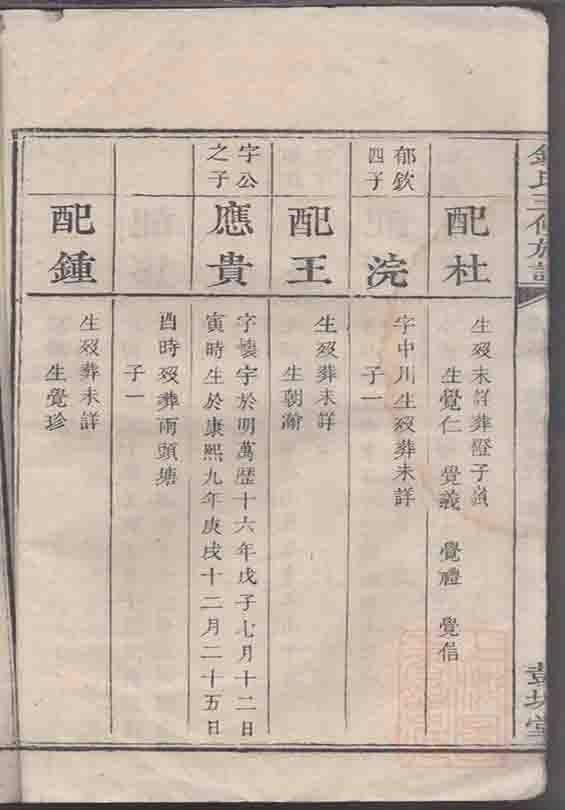 氏三修族譜
堂
配杜
生歿未詳葬
生覺仁 覺義 覺禮 覺信
郁欽
四子
浣
字中川生歿葬未詳
子一
配王
生歿葬未詳
生朝瀚
字公
之子
應貴
字懷宇於明萬歷十六年戊子七月十二日
寅時生於康熙九年庚戌十二月二十五日
酉時歿葬兩頭塘
子一
配鍾
生歿葬未詳
生覺珍